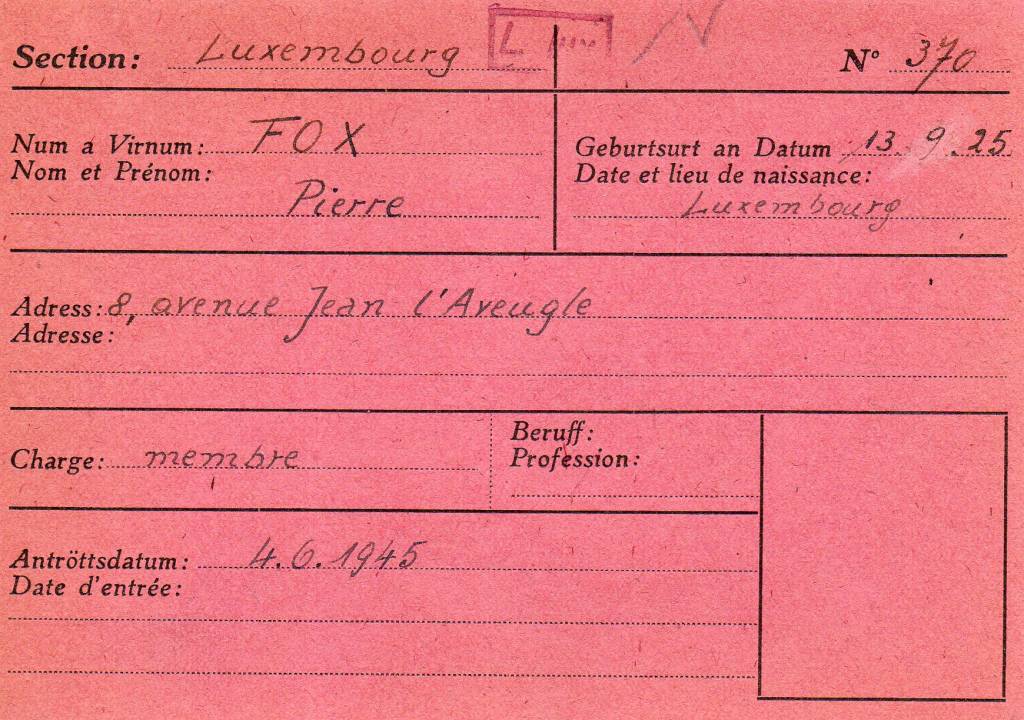 Section: Luxembourg L N° 370
Num a Virnum: FOX
Nom et Prénom:
Pierre
Geburtsurt an Datum 13.9.25
Date et lieu de naissance:
Luxembourg
Adress: 8, avenue Jean l'Aveugle
Adresse:
Charge: membre
Beruff:
Profession:
Antröttsdatum: 4.6.1945
Date d'entrée: